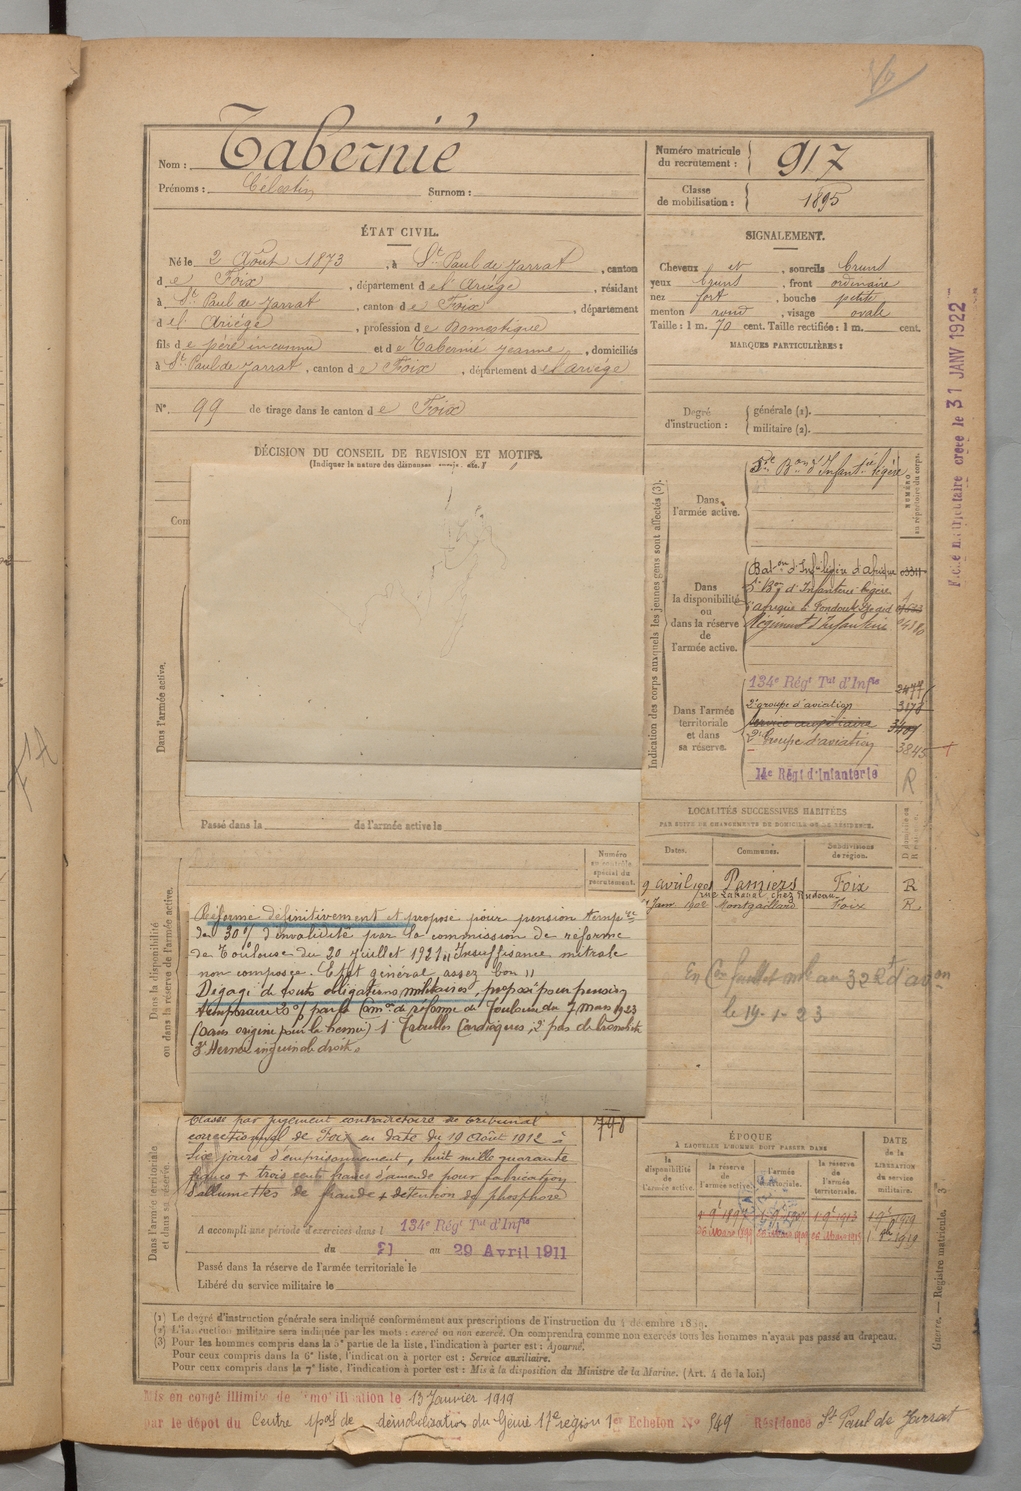 Nom : Tabernié
Prénoms : Célestin Surnom :
Numéro matricule du recrutement : 917
Classe de mobilisation : 1895
ÉTAT CIVIL.
Né le 2 Août 1873, à St Paul de Jarrat, canton
de Foix, département de l'Ariége, résidant
à St Paul de Jarrat, canton de Foix, département
de l'Ariége, profession de Domestique
fils de père inconnu et de Tabernié Jeanne, domiciliés
à St Paul de Jarrat, canton de Foix, département de l'ariége
N° 99 de tirage dans le canton de Foix
SIGNALEMENT.
Cheveux et, sourcils bruns
yeux bruns, front ordinaire
nez fort, bouche petite
menton rond, visage ovale
Taille : 1 m. 70 cent. Taille rectifiée : 1 m. cent.
MARQUES PARTICULIÈRES :
Degré d'instruction : générale (1).
militaire (2).
31 JANV 1922
DÉCISION DU CONSEIL DE REVISION ET MOTIFS.
Dans l'armée active.
Passé dans la de l'armée active le
Indication des corps auxquels les jeunes gens sont affectés (3).
NUMÉRO au répertoire du corps.
Dans l'armée active.
5e Bon d'Infantie légère
Dans la disponibilité ou dans la réserve de l'armée active.
Baton d'Inf. légère d'afrique
5e Bon d'Infanterie légère
Régiment d'Infanterie
Dans l'armée territoriale et dans sa réserve.
134e Régt Tal d'Infie 2477
2e groupe d'aviation 3178
Service auxiliaire
2e Groupe d'aviation 3845
14e Régt d'Infanterie R
LOCALITÉS SUCCESSIVES HABITÉES
PAR SUITE DE CHANGEMENTS DE DOMICILE OU DE RÉSIDENCE.
Dates. Communes. Subdivisions de région.
9 avril 1901 Pamiers Foix R
rue Lakanal chez Rudeau
Janv 1902 Montgailhard Foix R
le 19-1-23
Numéro au contrôle spécial du recrutement.
Dans la disponibilité ou dans la réserve de l'armée active.
Réformé définitivement et proposé pour pension tempre
de 30% d'invalidité par la commission de réforme
de Toulouse du 20 Juillet 1921 „ Insuffisance mitrale
non composée. Etat général assez bon „
Dégagé de toutes obligations militaires, proposé pour pension
temporaire 20% par la Comon de réforme de Toulouse du 7 mars 1923
(sans origine pour la hernie) 1° Troubles Cardiaques, 2° pas de tremblt
3° Hernie inguinale droite.
Dans l'armée territoriale et dans sa réserve.
Classé par jugement contradictoire du tribunal 798
correctionnel de Foix en date du 19 Août 1912 à
Six jours d'emprisonnement, huit mille quarante
francs + trois cents francs d'amende pour fabrication
d'allumettes de fraude + détention de phosphore
A accompli une période d'exercices dans l 134e Régt Tal d'Infie
du 21 au 29 Avril 1911
Passé dans la réserve de l'armée territoriale le
Libéré du service militaire le
ÉPOQUE
À LAQUELLE L'HOMME DOIT PASSER DANS
la disponibilité de l'armée active.
la réserve de l'armée active.
l'armée territoriale.
la réserve de l'armée territoriale.
DATE de la LIBÉRATION du service militaire.
(1) Le degré d'instruction générale sera indiqué conformément aux prescriptions de l'instruction du 4 décembre 1889.
(2) L'instruction militaire sera indiquée par les mots : exercé ou non exercé. On comprendra comme non exercés tous les hommes n'ayant pas passé au drapeau.
(3) Pour les hommes compris dans la 5e partie de la liste, l'indication à porter est : Ajourné.
Pour ceux compris dans la 6e liste, l'indication à porter est : Service auxiliaire.
Pour ceux compris dans la 7e liste, l'indication à porter est : Mis à la disposition du Ministre de la Marine. (Art. 4 de la loi.)
Guerre. — Registre matricule.
Mis en congé illimité de démobilisation le 13 Janvier 1919
par le dépôt du Centre de démobilisation du Génie 17e région 1er Echelon N° 549 Résidence St Paul de Jarrat